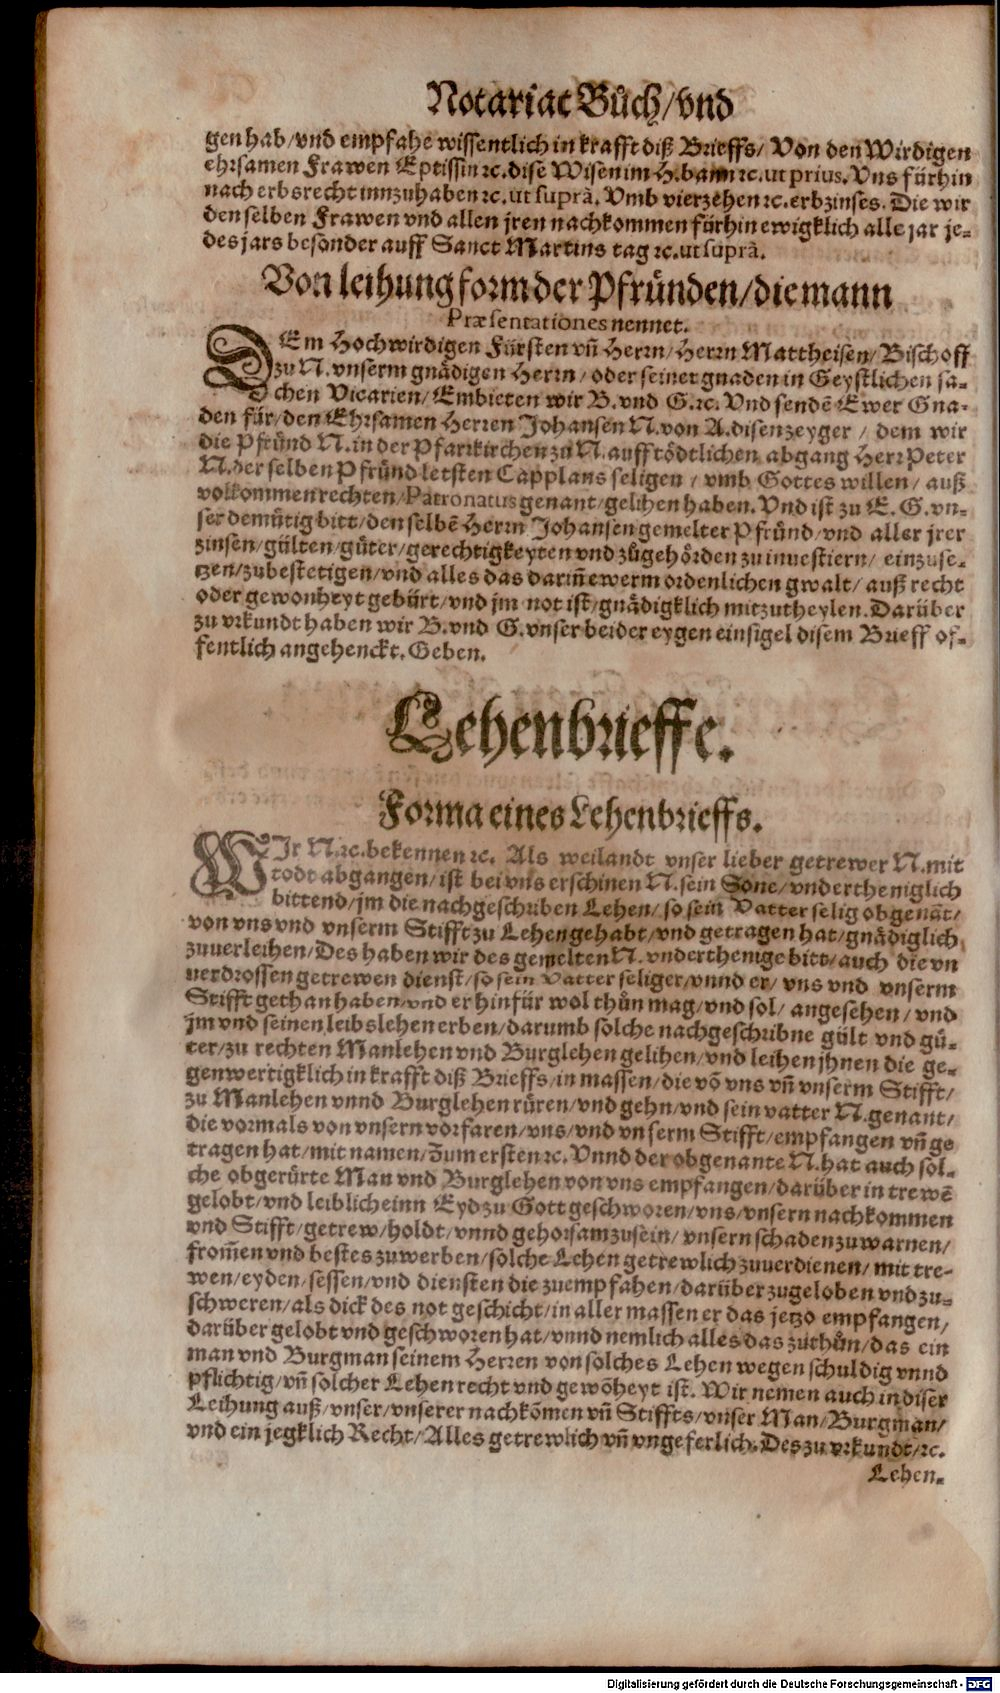 Notariat Bůch/vnd
gen hab/vnd empfahe wissentlich in krafft diß Brieffs/ Von den Wirdigen
ehrsamen Frawen Eptissin ꝛc.dise Wisen im H.bann ꝛc.ut prius. Vns fürhin
nach erbsrecht innzuhaben ꝛc.ut suprà. Vmb vierzehen ꝛc.erbzinses. Die wir
den selben Frawen vnd allen jren nachkommen fürhin ewigklich alle jar je-
des jars besonder auff Sanct Martins tag ꝛc.ut suprà.
Von leihung form der Pfründen/die mann
Præsentationes nennet.
DEm Hochwirdigen Fürsten vñ Herrn/Herrn Mattheisen/Bischoff
zu N.vnserm gnädigen Herrn/oder seiner gnaden in Geystlichen sa-
chen Vicarien/Embieten wir B.vnd G.ꝛc. Vnd sendē Ewer Gna-
den für/den Ehrsamen Herren Johansen N.von A.disenzeyger/ dem wir
die Pfründ N.in der Pfarrkirchen zu N.auff tödtlichen abgang Herr Peter
N.der selben Pfründ letsten Capplans seligen / vmb Gottes willen/ auß
volkommen rechten/Patronatus genant/gelihen haben. Vnd ist zu E. G. vn-
ser demütig bitt/den selbē Herrn Johansen gemelter Pfründ/vnd aller jrer
zinsen/gülten/güter/gerechtigkeyten vnd zůgehörden zu inuestiern/ einzuse-
tzen/zubestetigen/vnd alles das dariñ ewerm ordenlichen gwalt/ auß recht
oder gewonheyt gebürt/vnd jm not ist/gnädigklich mitzutheylen. Darüber
zu vrkundt haben wir B.vnd G.vnser beider eygen einsigel disem Brieff of-
fentlich angehenckt.Geben.
Lehenbrieffe.
Forma eines Lehenbrieffs.
WIr N.ꝛc.bekennen ꝛc. Als weilandt vnser lieber getrewer N.mit
todt abgangen/ist bei vns erschinen N.sein Sone/vndertheniglich
bittend/jm die nachgeschriben Lehen/so sein Vatter selig obgenāt/
von vns vnd vnserm Stifft zu Lehen gehabt/vnd getragen hat/gnädiglich
zuuerleihen/Des haben wir des gemelten N.vnderthenige bitt/auch die vn
uerdrossen getrewen dienst/so sein Vatter seliger/vnnd er/ vns vnd vnserm
Stifft gethan haben/vnd er hinfür wol thůn mag/vnd sol/ angesehen/ vnd
jm vnd seinen leibslehen erben/darumb solche nachgeschribne gült vnd gü-
ter/zu rechten Manlehen vnd Burglehen gelihen/vnd leihen jhnen die ge-
genwertigklich in krafft diß Brieffs/in massen/die võ vns vñ vnserm Stifft/
zu Manlehen vnnd Burglehen rüren/vnd gehn/vnd sein vatter N.genant/
die vormals von vnsern vorfaren/vns/vnd vnserm Stifft/empfangen vñ ge
tragen hat/mit namen/Zum ersten ꝛc. Vnnd der obgenante N.hat auch sol-
che obgerürte Man vnd Burglehen von vns empfangen/darüber in trewē
gelobt/vnd leiblich einn Eyd zu Gott geschworen/vns/vnsern nachkommen
vnd Stifft/getrew/holdt/vnnd gehorsam zusein/ vnsern schaden zuwarnen/
from̃en vnd bestes zuwerben/solche Lehen getrewlich zuuerdienen/ mit tre-
wen/eyden/sessen/vnd diensten die zuempfahen/darüber zugeloben vnd zu-
schweren/als dick des not geschicht/in aller massen er das jetzo empfangen/
darüber gelobt vnd geschworen hat/vnnd nemlich alles das zůthůn/das ein
man vnd Burgman seinem Herren von solches Lehen wegen schuldig vnnd
pflichtig/vñ solcher Lehen recht vnd gewõheyt ist. Wir nemen auch in diser
Leihung auß/vnser/vnserer nachkõmen vñ Stiffts/vnser Man/Burgman/
vnd ein jegklich Recht/Alles getrewlich vñ vngeferlich. Des zu vrkundt/ꝛc.
Lehen-
Digitalisierung gefördert durch die Deutsche Forschungsgemeinschaft - DFG